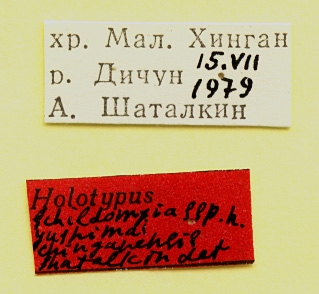 хр. Мал. Хинган
р. Дичун 15.VII
1979
А. Шаталкин
Holotypus
Schildomyia ssp. n.
yushimai
chinganensis
Shatalkin det